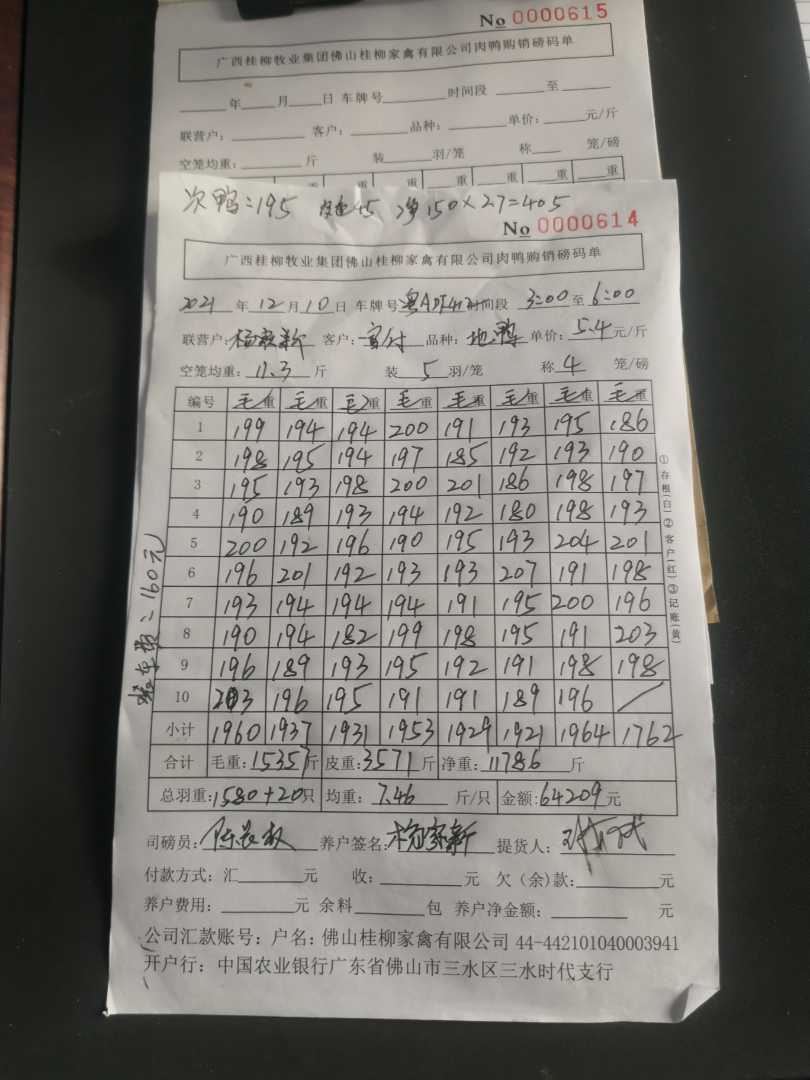 No 0000615
广西桂柳牧业集团佛山桂柳家禽有限公司肉鸭购销磅码单
年 月 日 车牌号 时间段 至
联营户： 客户： 品种： 单价： 元/斤
空笼均重： 斤 装 羽/笼 称 笼/磅
重 重 重 重 重 重 重
次鸭：195 皮45 净150×27=405
No 0000614
广西桂柳牧业集团佛山桂柳家禽有限公司肉鸭购销磅码单
2021 年 12 月 10 日 车牌号 粤A 时间段 3:00 至 6:00
联营户： 客户： 品种： 地鸭 单价： 5.4 元/斤
空笼均重： 11.3 斤 装 5 羽/笼 称 4 笼/磅
编号 毛重 毛重 毛重 毛重 毛重 毛重 毛重 毛重
1 199 194 194 200 191 193 195 186
2 198 195 194 197 185 192 193 190
3 195 193 198 200 201 186 198 197
4 190 189 193 194 192 180 198 193
5 200 192 196 190 195 193 204 201
6 196 201 192 193 193 207 191 198
7 193 194 194 194 191 195 200 196
8 190 194 182 199 198 195 191 203
9 196 189 193 195 192 191 198 198
10 203 196 195 191 191 189 196 /
小计 1960 1937 1931 1953 1929 1921 1964 1762
合计 毛重：15357斤 皮重：3571斤 净重：11786 斤
总羽重：1580+20只 均重： 7.46 斤/只 金额：64209元
司磅员： 养户签名： 提货人：
付款方式：汇 元 收： 元 欠（余）款： 元
养户费用： 元 余料 包 养户净金额： 元
公司汇款账号：户名：佛山桂柳家禽有限公司 44-442101040003941
开户行：中国农业银行广东省佛山市三水区三水时代支行
①存根(白)②客户(红)③记账(黄)
车费：160元